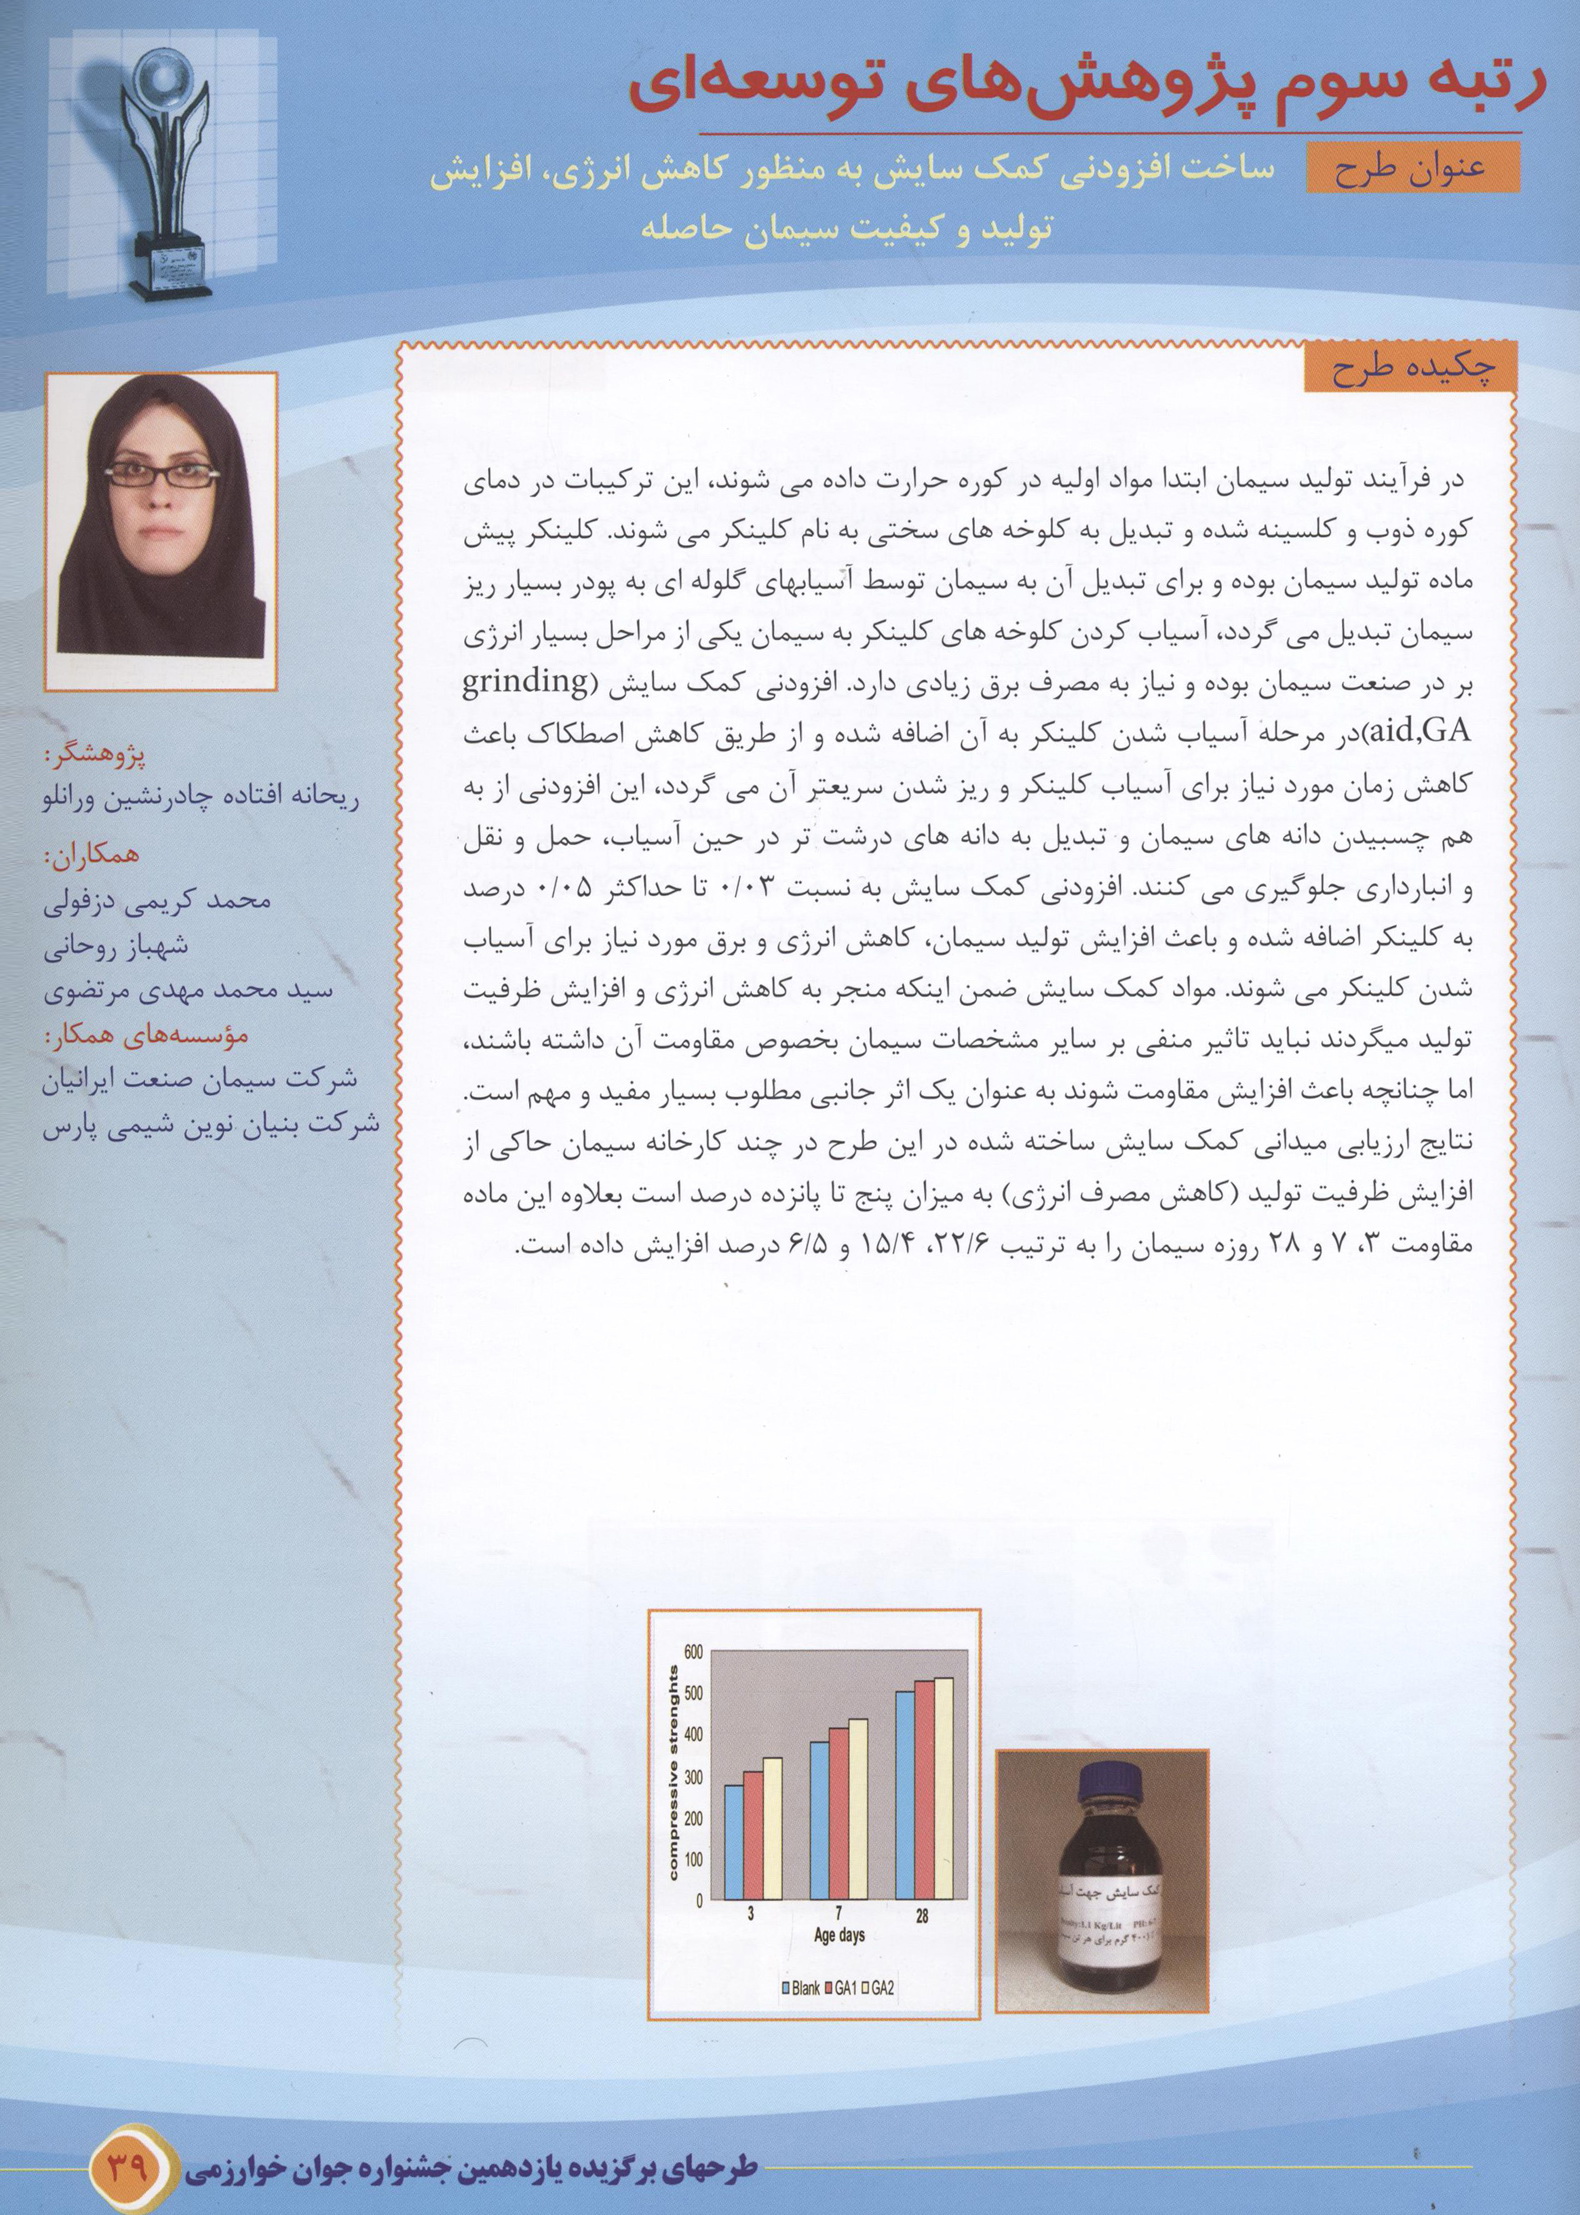 رتبه سوم پژوهش‌های توسعه‌ای
عنوان طرح
ساخت افزودنی کمک سایش به منظور کاهش انرژی، افزایش
تولید و کیفیت سیمان حاصله
چکیده طرح
در فرآیند تولید سیمان ابتدا مواد اولیه در کوره حرارت داده می شوند، این ترکیبات در دمای
کوره ذوب و کلسینه شده و تبدیل به کلوخه های سختی به نام کلینکر می شوند. کلینکر پیش
ماده تولید سیمان بوده و برای تبدیل آن به سیمان توسط آسیابهای گلوله ای به پودر بسیار ریز
سیمان تبدیل می گردد، آسیاب کردن کلوخه های کلینکر به سیمان یکی از مراحل بسیار انرژی
بر در صنعت سیمان بوده و نیاز به مصرف برق زیادی دارد. افزودنی کمک سایش (grinding
aid,GA)در مرحله آسیاب شدن کلینکر به آن اضافه شده و از طریق کاهش اصطکاک باعث
کاهش زمان مورد نیاز برای آسیاب کلینکر و ریز شدن سریعتر آن می گردد، این افزودنی از به
هم چسبیدن دانه های سیمان و تبدیل به دانه های درشت تر در حین آسیاب، حمل و نقل
و انبارداری جلوگیری می کنند. افزودنی کمک سایش به نسبت ۰/۰۳ تا حداکثر ۰/۰۵ درصد
به کلینکر اضافه شده و باعث افزایش تولید سیمان، کاهش انرژی و برق مورد نیاز برای آسیاب
شدن کلینکر می شوند. مواد کمک سایش ضمن اینکه منجر به کاهش انرژی و افزایش ظرفیت
تولید میگردند نباید تاثیر منفی بر سایر مشخصات سیمان بخصوص مقاومت آن داشته باشند،
اما چنانچه باعث افزایش مقاومت شوند به عنوان یک اثر جانبی مطلوب بسیار مفید و مهم است.
نتایج ارزیابی میدانی کمک سایش ساخته شده در این طرح در چند کارخانه سیمان حاکی از
افزایش ظرفیت تولید (کاهش مصرف انرژی) به میزان پنج تا پانزده درصد است بعلاوه این ماده
مقاومت ۳، ۷ و ۲۸ روزه سیمان را به ترتیب ۲۲/۶، ۱۵/۴ و ۶/۵ درصد افزایش داده است.
پژوهشگر:
ریحانه افتاده چادرنشین ورانلو
همکاران:
محمد کریمی دزفولی
شهباز روحانی
سید محمد مهدی مرتضوی
مؤسسه‌های همکار:
شرکت سیمان صنعت ایرانیان
شرکت بنیان نوین شیمی پارس
600
500
400
300
200
100
0
compressive strenghts
3 7 28
Age days
Blank GA1 GA2
کمک سایش جهت
1.1 Kg/Lit PH:
گرم برای هر تن
طرحهای برگزیده یازدهمین جشنواره جوان خوارزمی
۳۹